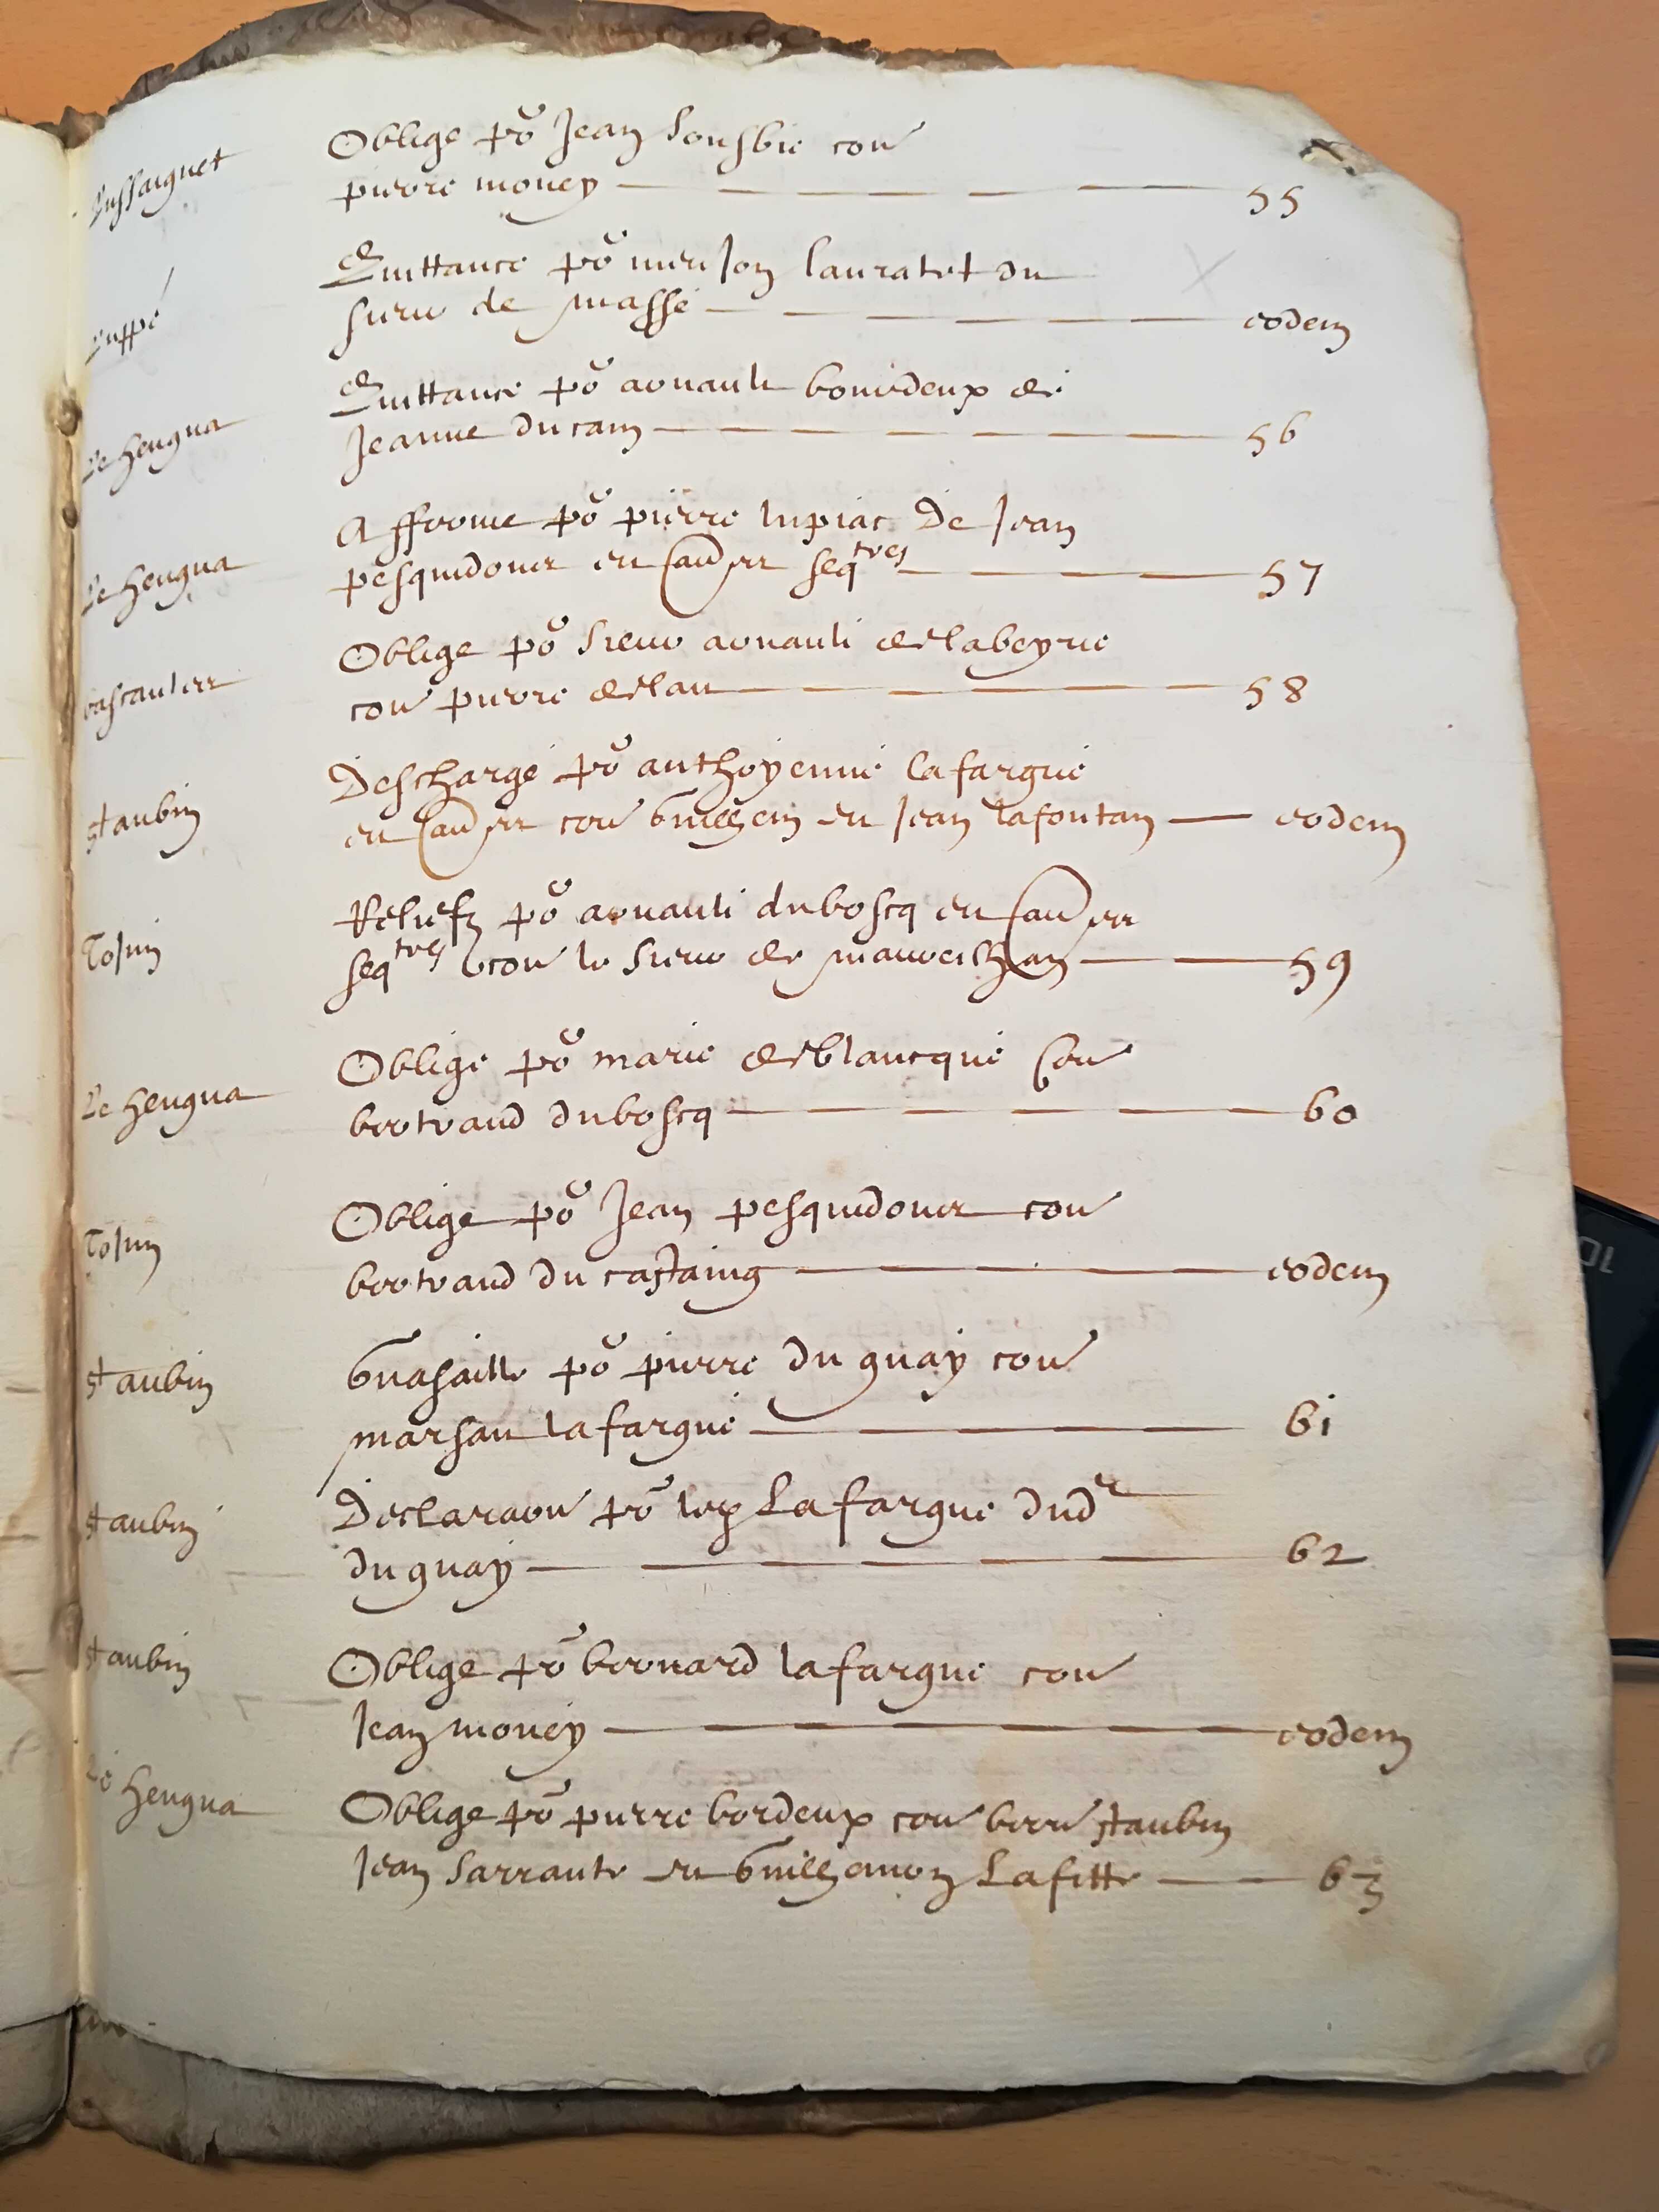 Lussaignet
Oblige po^r Jean Sousbie con^e
pierre mouey 55
Luppé
Quittance po^r Lauratet du
sieur de Massé eodem
Le hengna
Quittance po^r arnault bourdeux de
Jeanne Ducam 56
Le hengna
Afferme po^r pierre lupiac de Jean
pesquidoux et au^res seq^tres 57
bascaules
Oblige po^r Sieur arnault de labeyrie
con^e pierre de lau 58
st aubin
Descharge po^r anthoyenne lafargue
et au^res con^e et Jean lafontan eodem
Tojun
Reliefz po^r arnault duboscq et au^res
seq^tres con^e le Sieur de 59
Le hengna
Oblige po^r marie de blancque con^e
bertrand duboscq 60
Tojun
Oblige po^r Jean pesquidoux con^e
bertrand du castaing eodem
st aubin
Guasaille po^r pierre du guay con^e
marsau lafargue 61
st aubin
Declaraon po^r lafargue dud^t
du guay 62
st aubin
Oblige po^r bernard lafargue con^e
Jean mouey eodem
Le hengna
Oblige po^r pierre bordeux con^e bern^d st aubin
Jean Sarraute et Lafitte 63